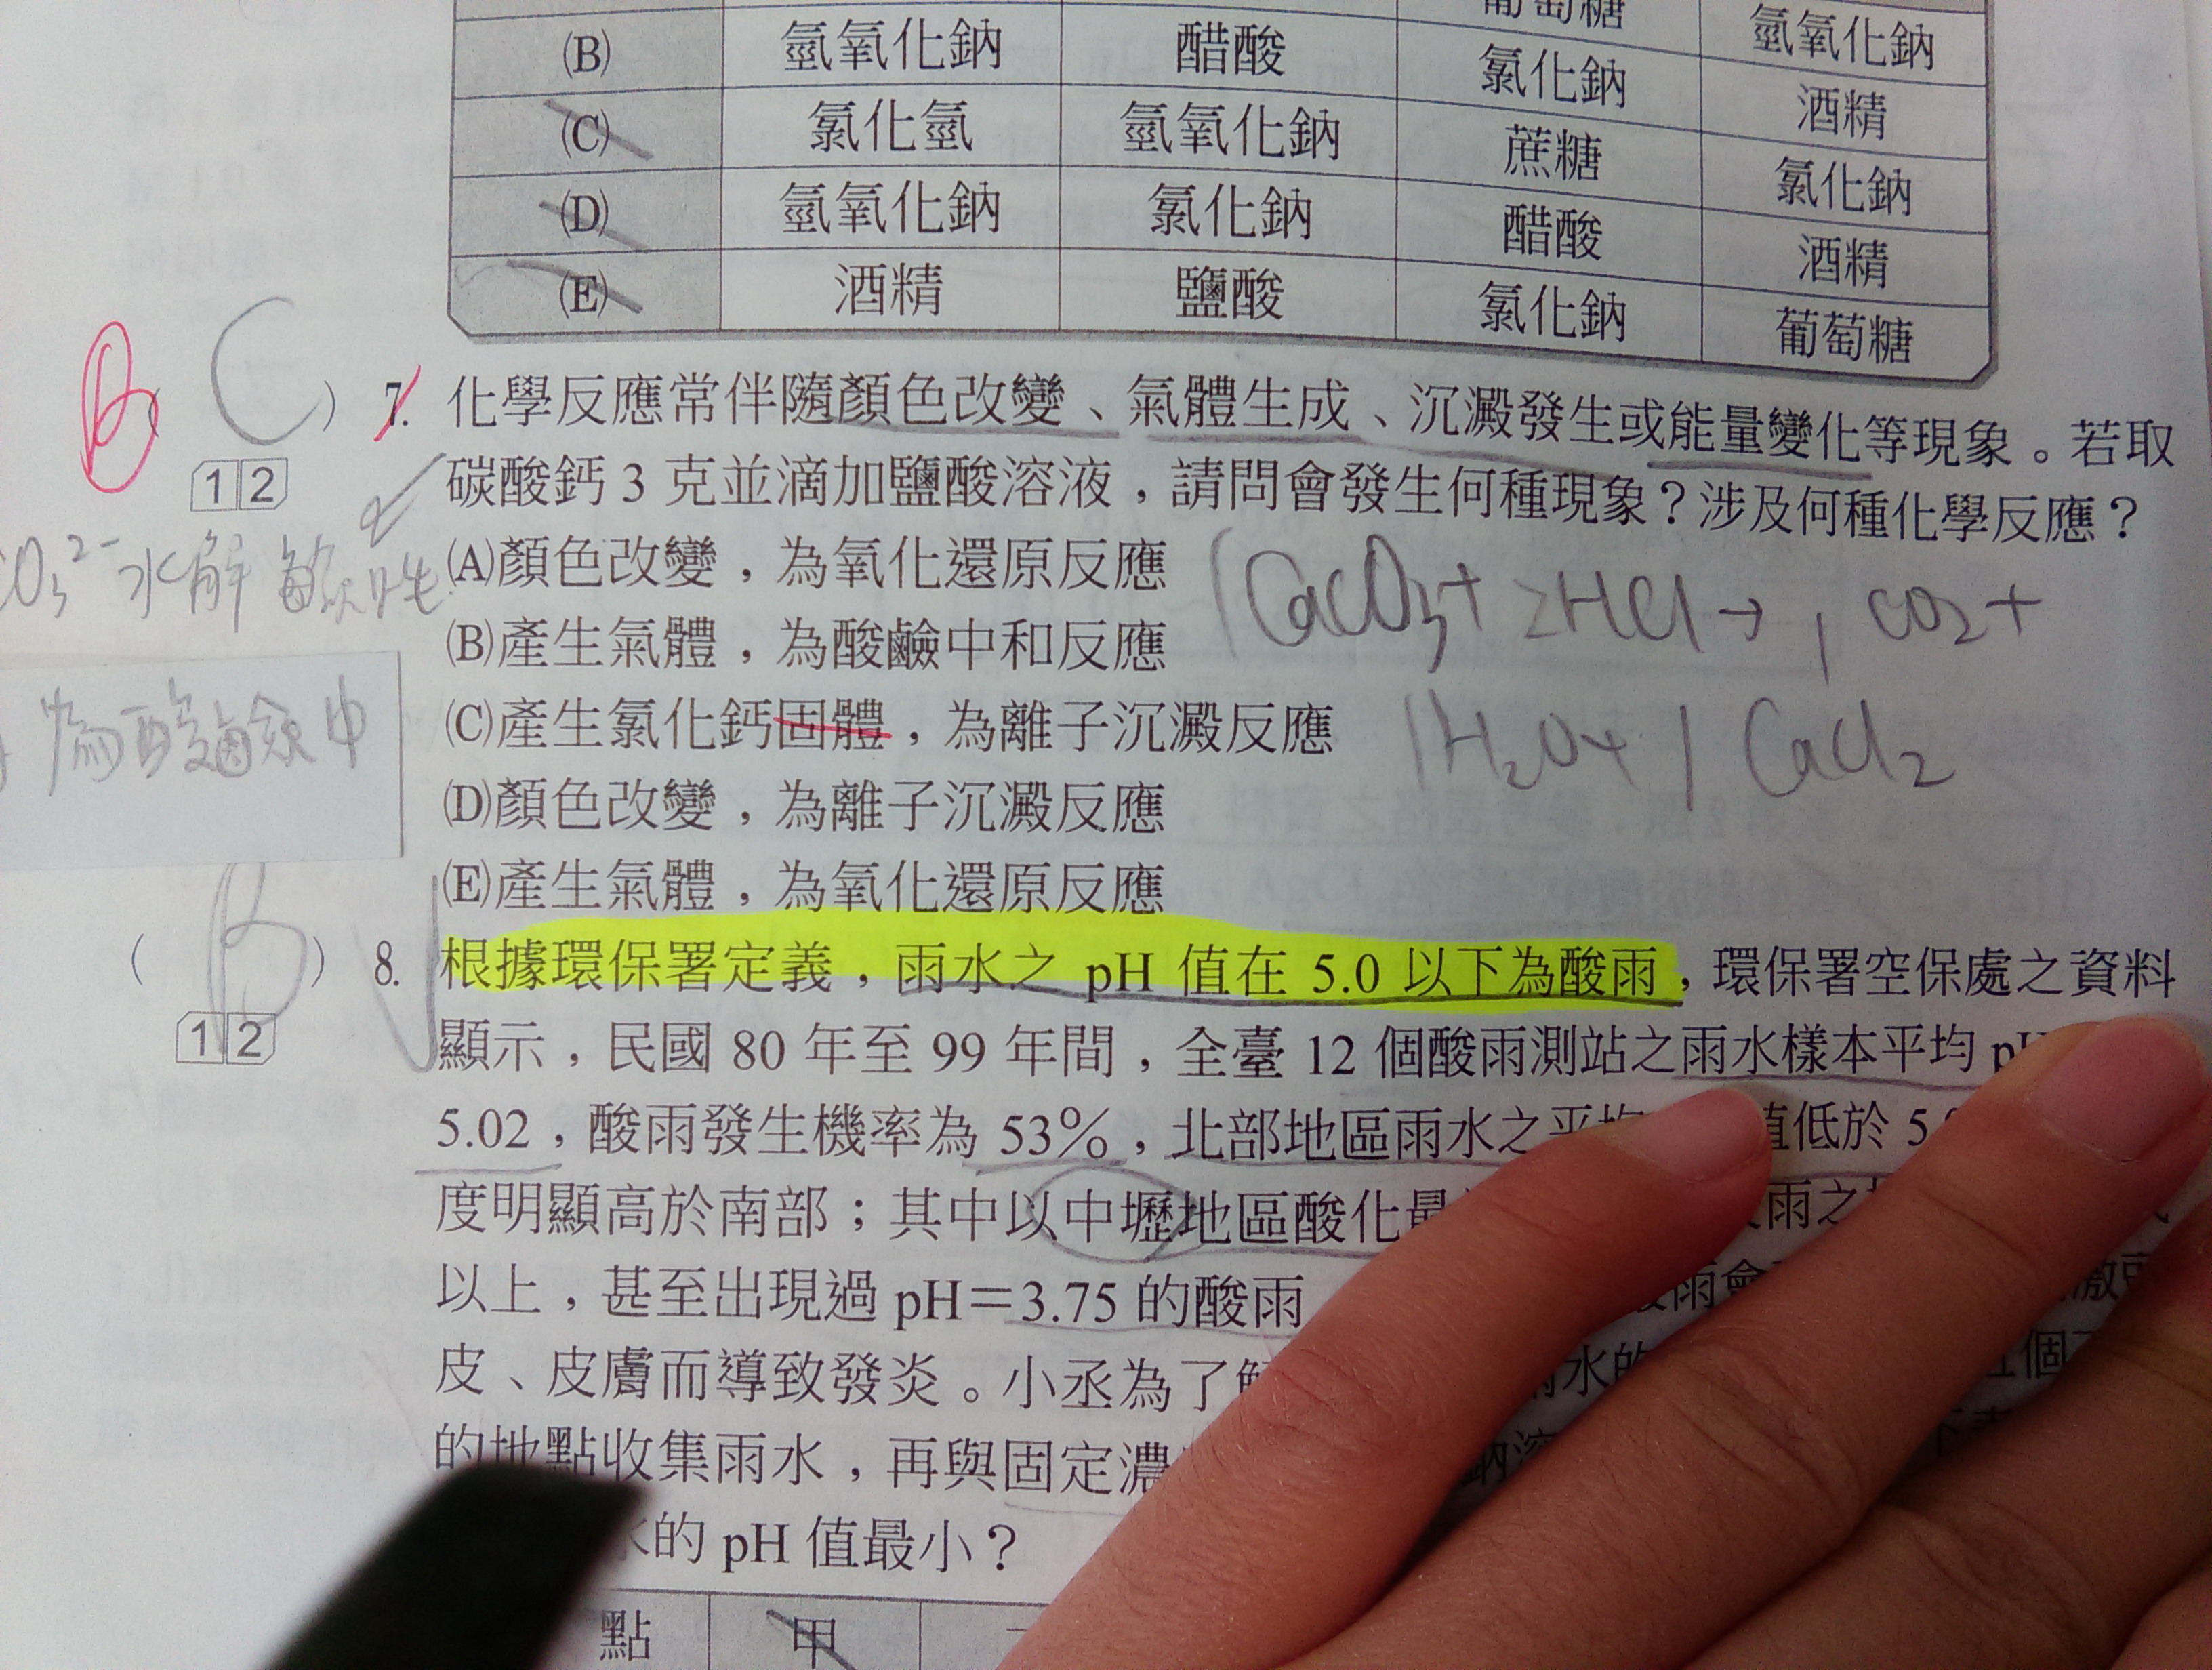 葡萄糖
(B) 氫氧化鈉 醋酸 氯化鈉 氫氧化鈉
(C) 氯化氫 氫氧化鈉 蔗糖 酒精
(D) 氫氧化鈉 氯化鈉 醋酸 氯化鈉
(E) 酒精 鹽酸 氯化鈉 酒精
葡萄糖
B ( C ) 7. 化學反應常伴隨顏色改變、氣體生成、沉澱發生或能量變化等現象。若取
12 碳酸鈣 3 克並滴加鹽酸溶液，請問會發生何種現象？涉及何種化學反應？
CO₃²⁻ 水解 鹼性
(A)顏色改變，為氧化還原反應
(B)產生氣體，為酸鹼中和反應
(C)產生氯化鈣固體，為離子沉澱反應
(D)顏色改變，為離子沉澱反應
(E)產生氣體，為氧化還原反應
1CaCO₃ + 2HCl → 1 CO₂ +
1H₂O + 1 CaCl₂
為酸鹼中
( B ) 8. 根據環保署定義，雨水之 pH 值在 5.0 以下為酸雨，環保署空保處之資料
12 顯示，民國 80 年至 99 年間，全臺 12 個酸雨測站之雨水樣本平均
5.02，酸雨發生機率為 53%，北部地區雨水之平均 值低於
度明顯高於南部；其中以中壢地區酸化 雨之
以上，甚至出現過 pH＝3.75 的酸雨 雨會
皮、皮膚而導致發炎。小丞為了 雨水的 個
的地點收集雨水，再與固定濃 鈉
水的 pH 值最小？
點 甲